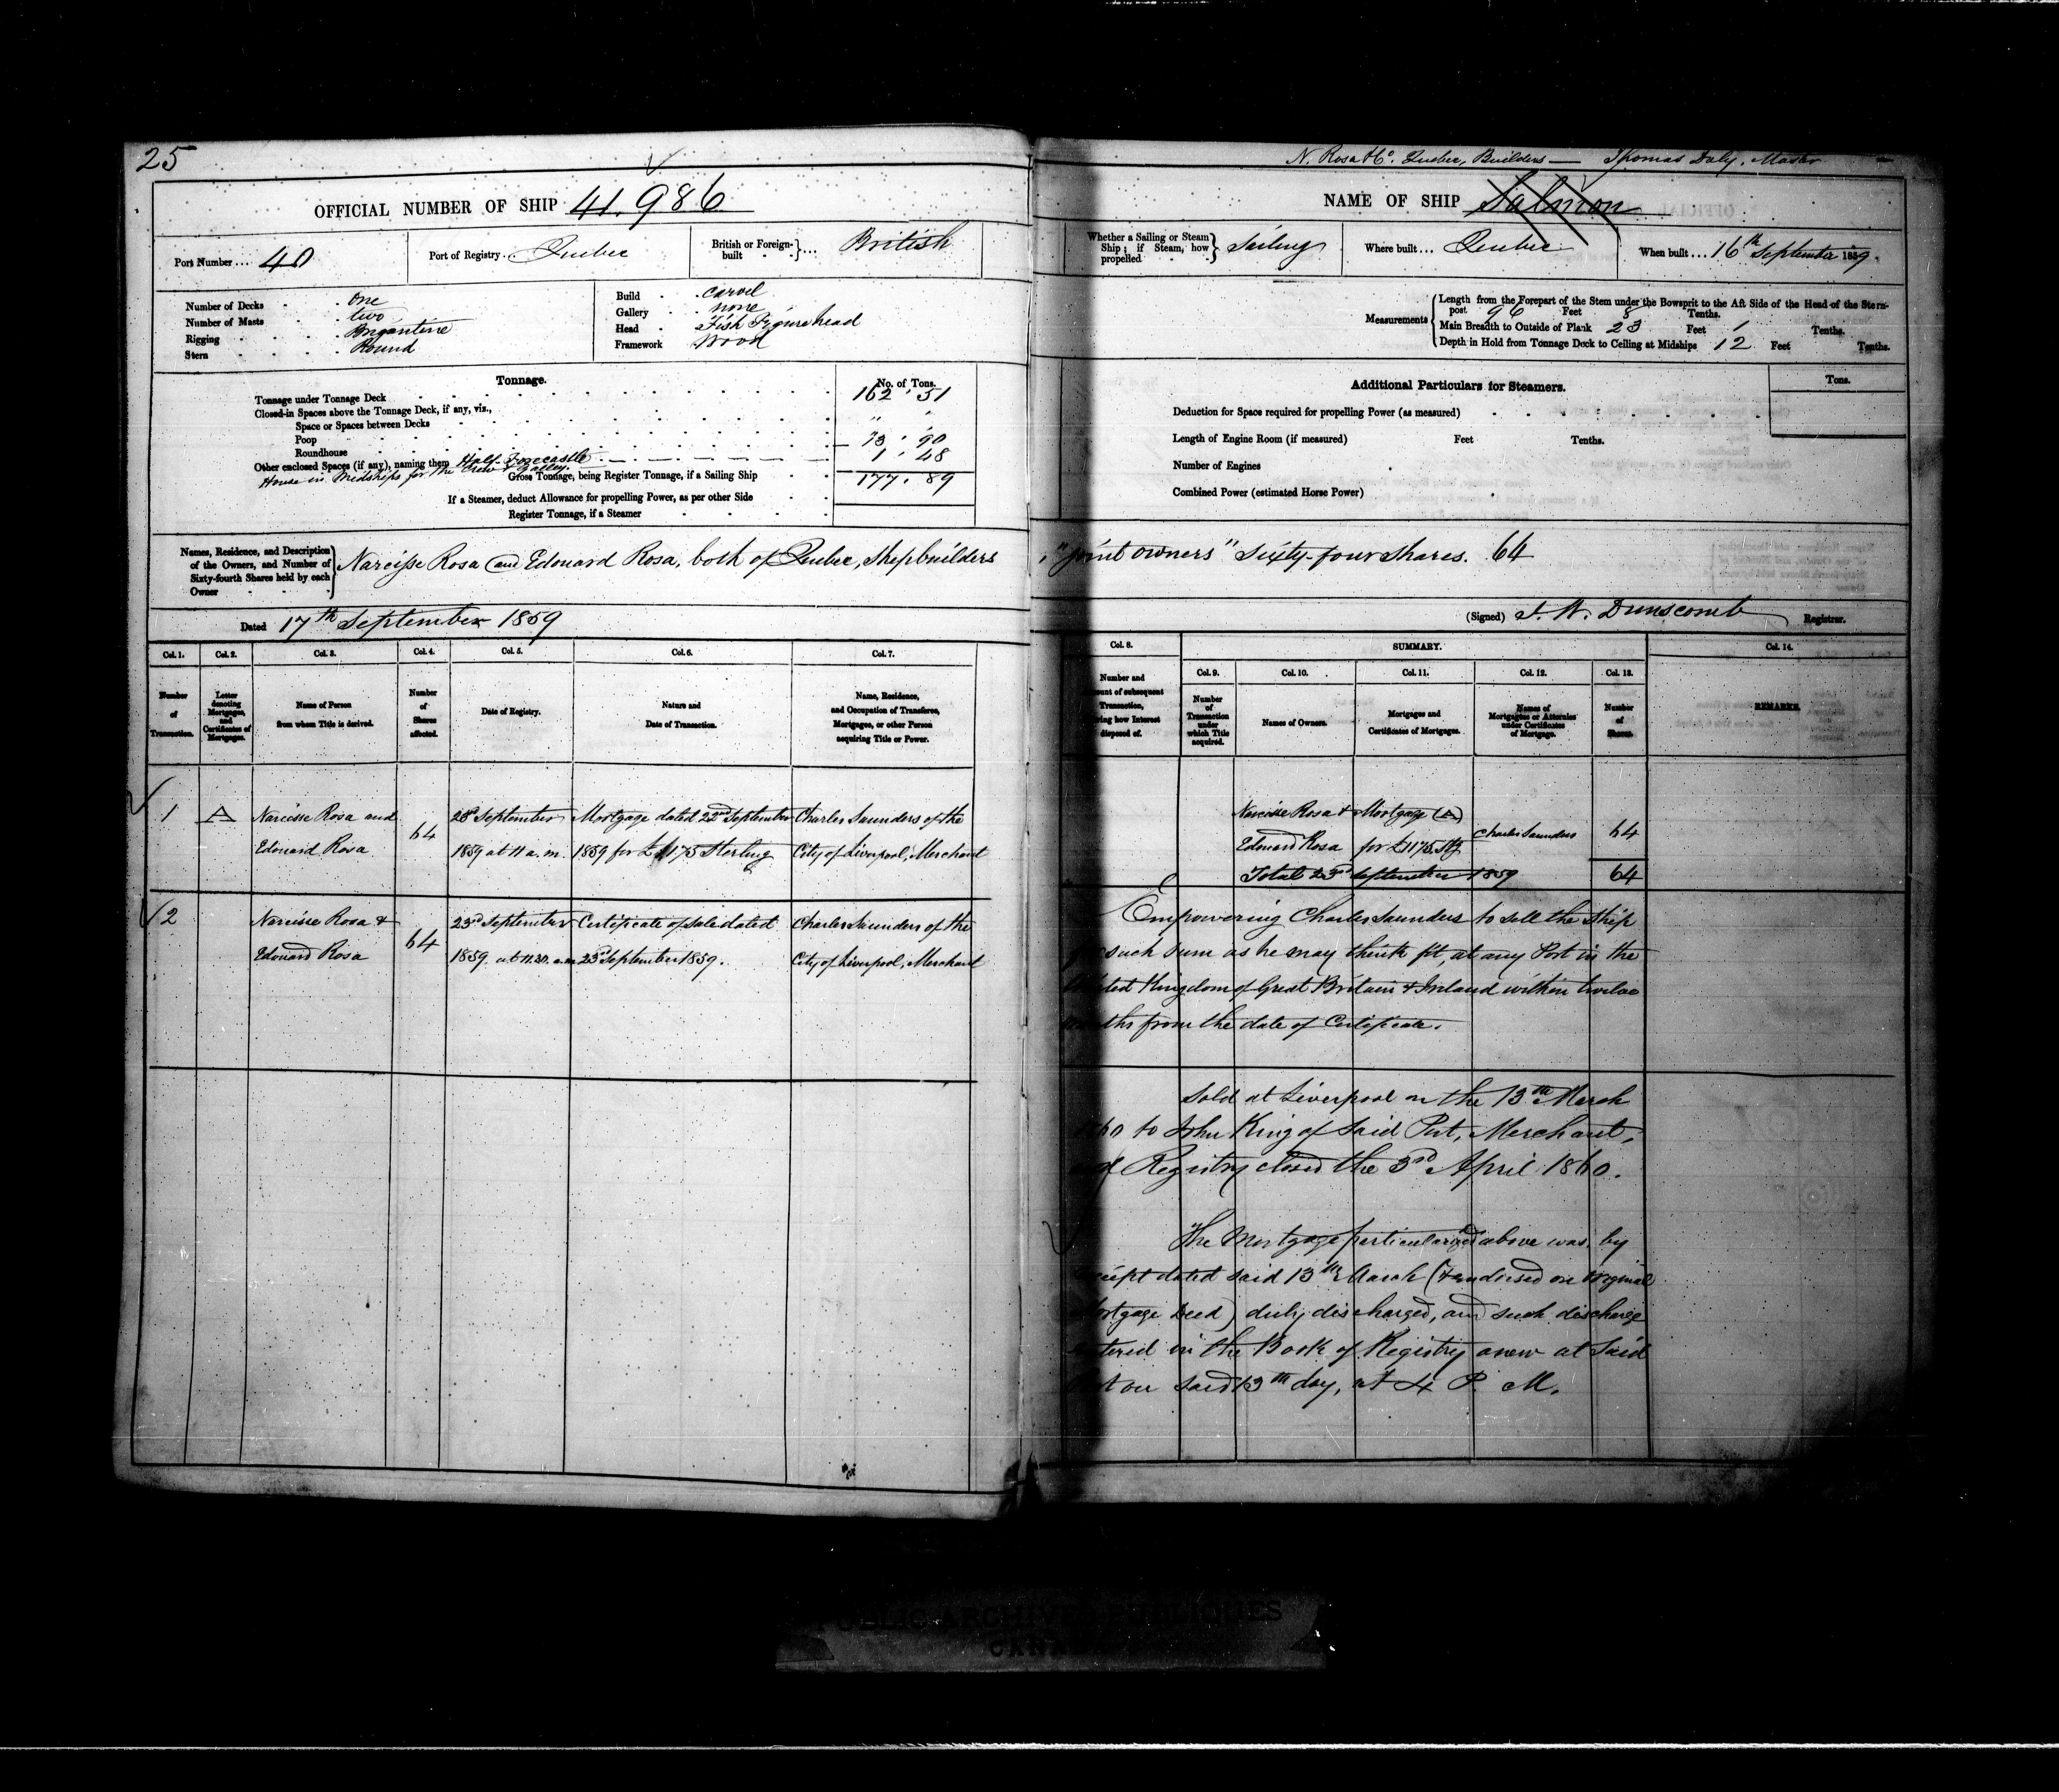 25
OFFICIAL NUMBER OF SHIP 41.986
Port Number ... 40
Port of Registry ... Quebec
British or Foreign-built } ... British
Number of Decks . One
Number of Masts . two
Rigging . Brigantine
Stern . Round
Build . carvel
Gallery . none
Head . Fish Figurehead
Framework Wood
Tonnage.
No. of Tons.
Tonnage under Tonnage Deck 162 . 51
Closed-in Spaces above the Tonnage Deck, if any, viz.,
Space or Spaces between Decks " "
Poop
Roundhouse 13 . 90
Other enclosed Spaces (if any), naming them Half Forecastle 1 . 48
House in Midships for the Crew & Galley.
Gross Tonnage, being Register Tonnage, if a Sailing Ship 177 . 89
If a Steamer, deduct Allowance for propelling Power, as per other Side
Register Tonnage, if a Steamer
Names, Residence, and Description of the Owners, and Number of Sixty-fourth Shares held by each Owner } Narcisse Rosa and Edouard Rosa, both of Quebec, Shipbuilders
Dated 17th September 1859
Col. 1. Col. 2. Col. 3. Col. 4. Col. 5. Col. 6. Col. 7.
Number of Transaction.
Letter denoting Mortgages, and Certificates of Mortgages.
Name of Person from whom Title is derived.
Number of Shares affected.
Date of Registry.
Nature and Date of Transaction.
Name, Residence, and Occupation of Transferee, Mortgagee, or other Person acquiring Title or Power.
1 A Narcisse Rosa and 64 23d September Mortgage dated 22nd September Charles Saunders of the
Edouard Rosa 1859 at 11 a.m. 1859 for £1175 Sterling City of Liverpool, Merchant
2 Narcisse Rosa & 64 23rd September Certificate of Sale dated Charles Saunders of the
Edouard Rosa 1859 at 11.30. a.m 23d September 1859. City of Liverpool, Merchant
N. Rosa & Co. Quebec, Builders — Thomas Daly, Master
NAME OF SHIP Salmon
Whether a Sailing or Steam Ship; if Steam, how propelled } Sailing
Where built ... Quebec
When built ... 16th September 1859.
Measurements
Length from the Forepart of the Stem under the Bowsprit to the Aft Side of the Head of the Stern-
post 96 Feet 8 Tenths.
Main Breadth to Outside of Plank 23 Feet 1 Tenths.
Depth in Hold from Tonnage Deck to Ceiling at Midships 12 Feet Tenths.
Additional Particulars for Steamers.
Tons.
Deduction for Space required for propelling Power (as measured)
Length of Engine Room (if measured) Feet Tenths.
Number of Engines
Combined Power (estimated Horse Power)
"joint owners" Sixty-four Shares. 64
(Signed) J. W. Dunscomb Registrar.
Col. 8. SUMMARY. Col. 14.
Col. 9. Col. 10. Col. 11. Col. 12. Col. 13.
Number and
of subsequent
Transaction,
how Interest
disposed of.
Number of Transaction under which Title acquired.
Names of Owners.
Mortgages and Certificates of Mortgages.
Names of Mortgagees or Attornies under Certificates of Mortgage.
Number of Shares.
REMARKS.
Narcisse Rosa & Mortgage (A)
Edouard Rosa for £1175. Stg Charles Saunders 64
Total 23rd September 1859 64
Empowering Charles Saunders to sell the Ship
such sum as he may think fit, at any Port in the
Kingdom of Great Britain & Ireland within twelve
from the date of Certificate.
Sold at Liverpool on the 13th March
to John King of said Port, Merchant,
Registry closed the 3rd April 1860.
The Mortgage particularized above was, by
dated said 13th March (& endorsed on original
Mortgage Deed) duly discharged, and such discharge
entered in the Book of Registry anew at said
on said 13th day, at 4 P. M.
PUBLIC ARCHIVES PUBLIQUES
CANADA